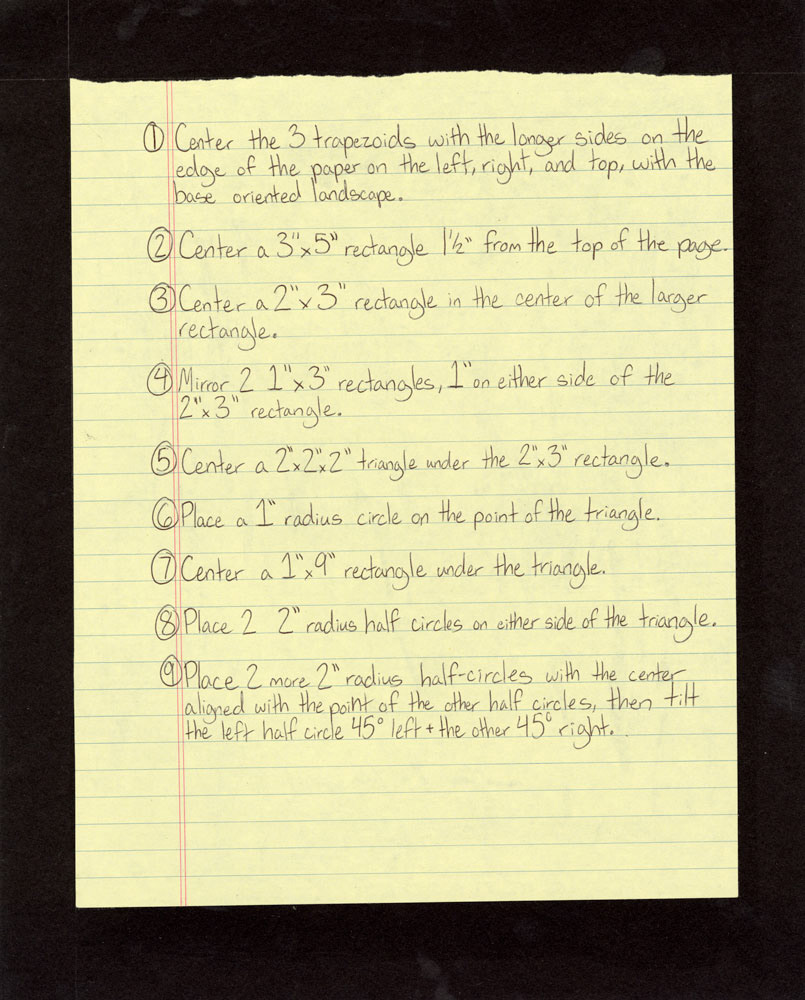 ① Center the 3 trapezoids with the longer sides on the
edge of the paper on the left, right, and top, with the
base oriented landscape.
② Center a 3"x5" rectangle 1½" from the top of the page.
③ Center a 2"x3" rectangle in the center of the larger
rectangle.
④ Mirror 2 1"x3" rectangles, 1" on either side of the
2"x3" rectangle.
⑤ Center a 2"x2"x2" triangle under the 2"x3" rectangle.
⑥ Place a 1" radius circle on the point of the triangle.
⑦ Center a 1"x9" rectangle under the triangle.
⑧ Place 2 2" radius half circles on either side of the triangle.
⑨ Place 2 more 2" radius half-circles with the center
aligned with the point of the other half circles, then tilt
the left half circle 45° left + the other 45° right.